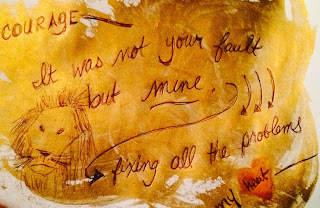 COURAGE
It was not your fault
but mine.
fixing all the problems
my heart